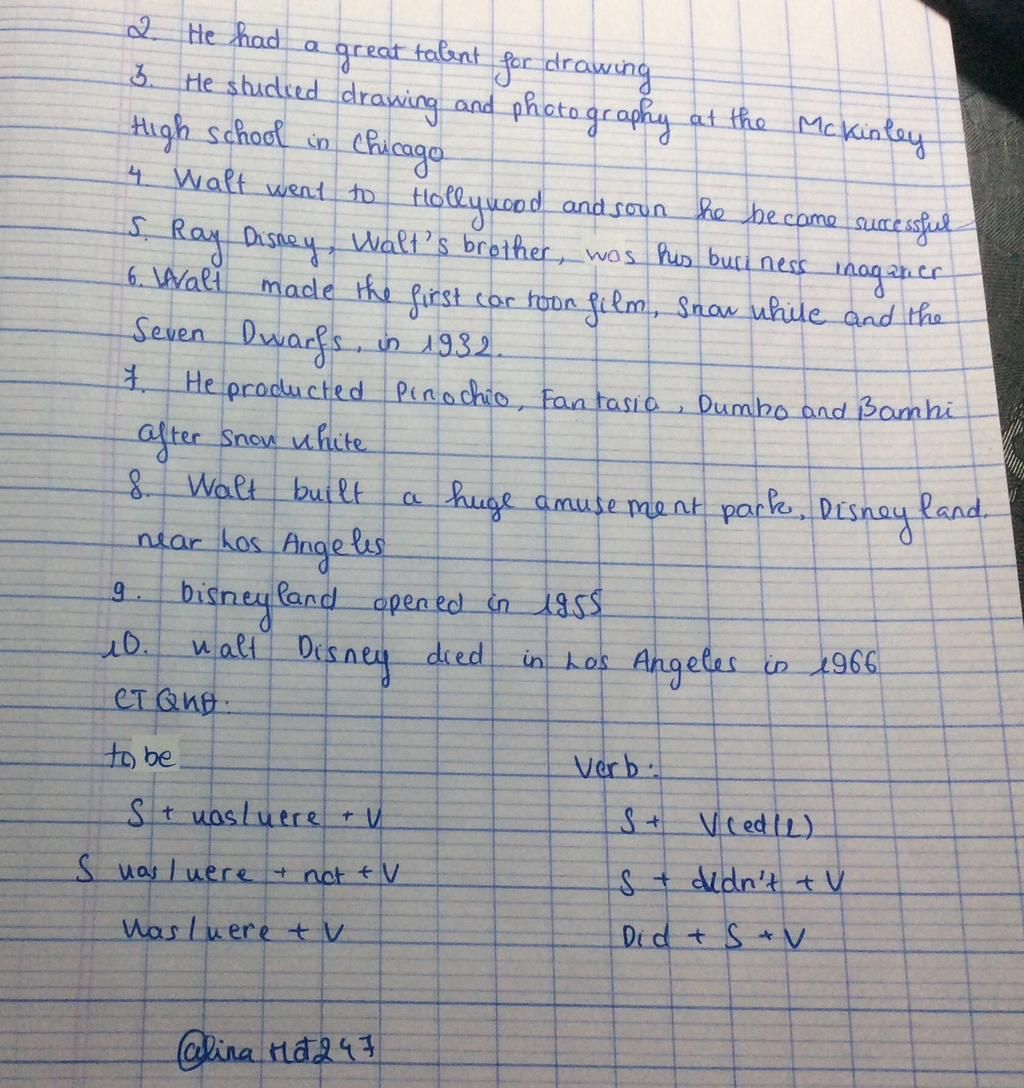 2. He had a great talent for drawing
3. He studied drawing and photography at the McKinley
High school in Chicago
4. Walt went to Hollywood and soon he became successful
5. Ray Disney, Walt's brother, was his business inaganer
6. Walt made the first cartoon film, Snow while and the
Seven Dwarfs, in 1932.
7. He producted Pinochio, Fantasia, Dumbo and Bambi
after snow white
8. Walt built a huge amusement park, Disneyland.
near Los Angeles
9. Disneyland opened in 1955
10. Walt Disney died in Los Angeles in 1966
CT QKĐ:
to be
Verb:
S + was/were + V
S + V(ed/2)
S was/were + not + V
S + didn't + V
Was/were + V
Did + S + V
@lina Hd247